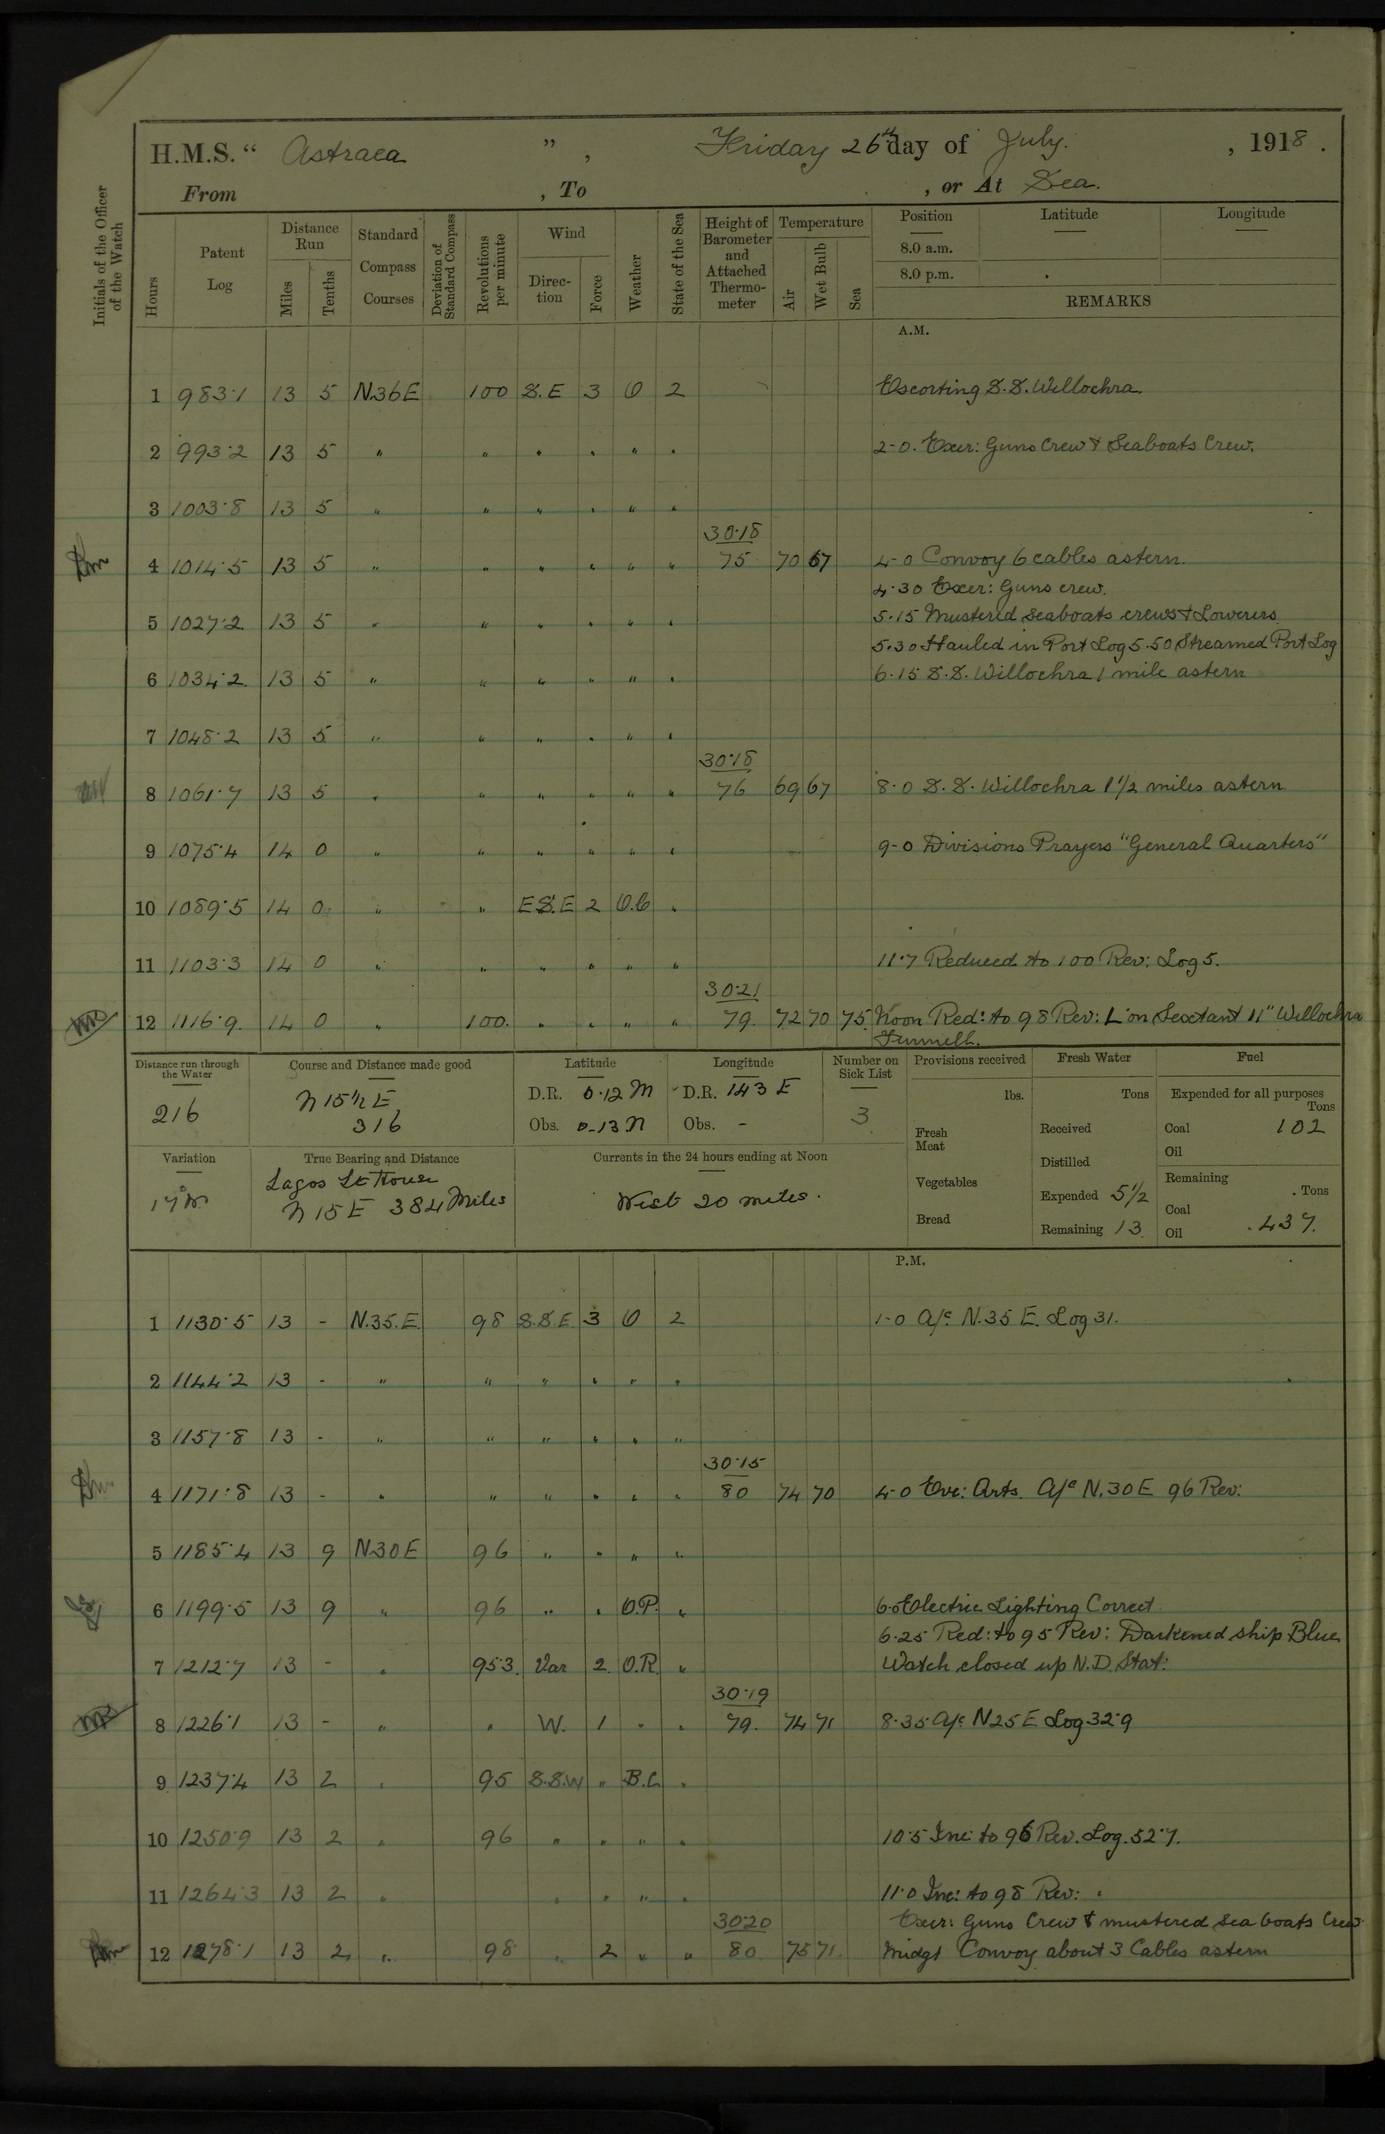 H.M.S. “ Astraea ” , Friday 26th day of July. , 1918 .
From , To , or At Sea.
Initials of the Officer of the Watch
Hours
Patent Log
Distance Run
Miles
Tenths
Standard Compass Courses
Deviation of Standard Compass
Revolutions per minute
Wind
Direction
Force
Weather
State of the Sea
Height of Barometer and Attached Thermometer
Temperature
Air
Wet Bulb
Sea
Position
Latitude
Longitude
8.0 a.m.
8.0 p.m.
REMARKS
A.M.
1 983·1 13 5 N36E 100 S.E 3 O 2 Escorting S.S. Willochra.
2 993·2 13 5 " " " " " " 2-0. Exer: Guns Crew & Seaboats Crew.
3 1003·8 13 5 " " " " " "
30·18
4 1014·5 13 5 " " " " " " 75 70 67 4-0 Convoy 6 cables astern.
4·30 Exer: Guns crew.
5 1027·2 13 5 " " " " " " 5·15 Mustered Seaboats crews & Lowerers
5·30 Hauled in Port Log 5·50 Streamed Port Log
6 1034·2 13 5 " " " " " " 6·15 S.S. Willochra 1 mile astern
7 1048·2 13 5 " " " " " "
30·18
8 1061·7 13 5 " " " " " " 76 69 67 8·0 S.S. Willochra 1 1/2 miles astern
9 1075·4 14 0 " " " " " " 9-0 Divisions Prayers "General Quarters"
10 1089·5 14 0 " " E S.E 2 O.C "
11 1103·3 14 0 " " " " " " 11·7 Reduced to 100 Rev: Log 5.
30·21
12 1116·9 14 0 " 100 " " " " 79 72 70 75 Noon Red: to 98 Rev: L on Sextant 11" Willochra
Funnell.
Distance run through the Water
216
Course and Distance made good
N 15 1/2 E
316
Latitude
D.R. 0·12 M
Obs. 0-13 N
Longitude
D.R. 143 E
Obs. -
Number on Sick List
3
Provisions received
lbs.
Fresh Meat
Vegetables
Bread
Fresh Water
Tons
Received
Distilled
Expended 5 1/2
Remaining 13
Fuel
Expended for all purposes
Tons
Coal 102
Oil
Remaining
Tons
Coal
Oil 437.
Variation
17°W
True Bearing and Distance
Lagos Lt House
N 15 E 384 Miles
Currents in the 24 hours ending at Noon
West 20 miles.
P.M.
1 1130·5 13 - N.35.E. 98 S.S.E 3 O 2 1-0 A/c N.35 E. Log 31.
2 1144·2 13 - " " " " " "
3 1157·8 13 - " " " " " "
30·15
4 1171·8 13 - " " " " " " 80 74 70 4-0 Eve: Qrts. A/c N.30 E 96 Rev:
5 1185·4 13 9 N30E 96 " " " "
6 1199·5 13 9 " 96 " " O.P. " 6·0 Electric Lighting Correct
6·25 Red: to 95 Rev: Darkened ship Blue
7 1212·7 13 - " 95·3 Var 2 O.R. " Watch closed up N.D. Stat:
30·19
8 1226·1 13 - " " W. 1 " " 79. 74 71 8·35 A/c N25E Log 32·9
9 1237·4 13 2 " 95 S.S.W " B.C "
10 1250·9 13 2 " 96 " " " " 10·5 Inc: to 96 Rev. Log. 52·7.
11 1264·3 13 2 " " " " " 11·0 Inc: to 98 Rev:
30·20 Exer: Guns Crew & mustered Sea boats Crew
12 1278·1 13 2 " 98 " 2 " " 80 75 71 Midgt Convoy about 3 Cables astern